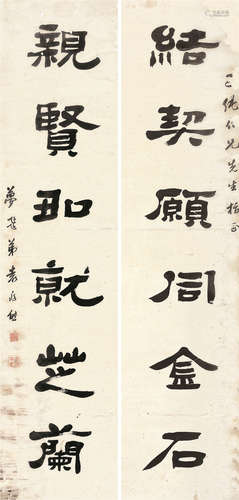 仁兄先生
結契願同金石
親賢如就芝蘭
夢 弟袁